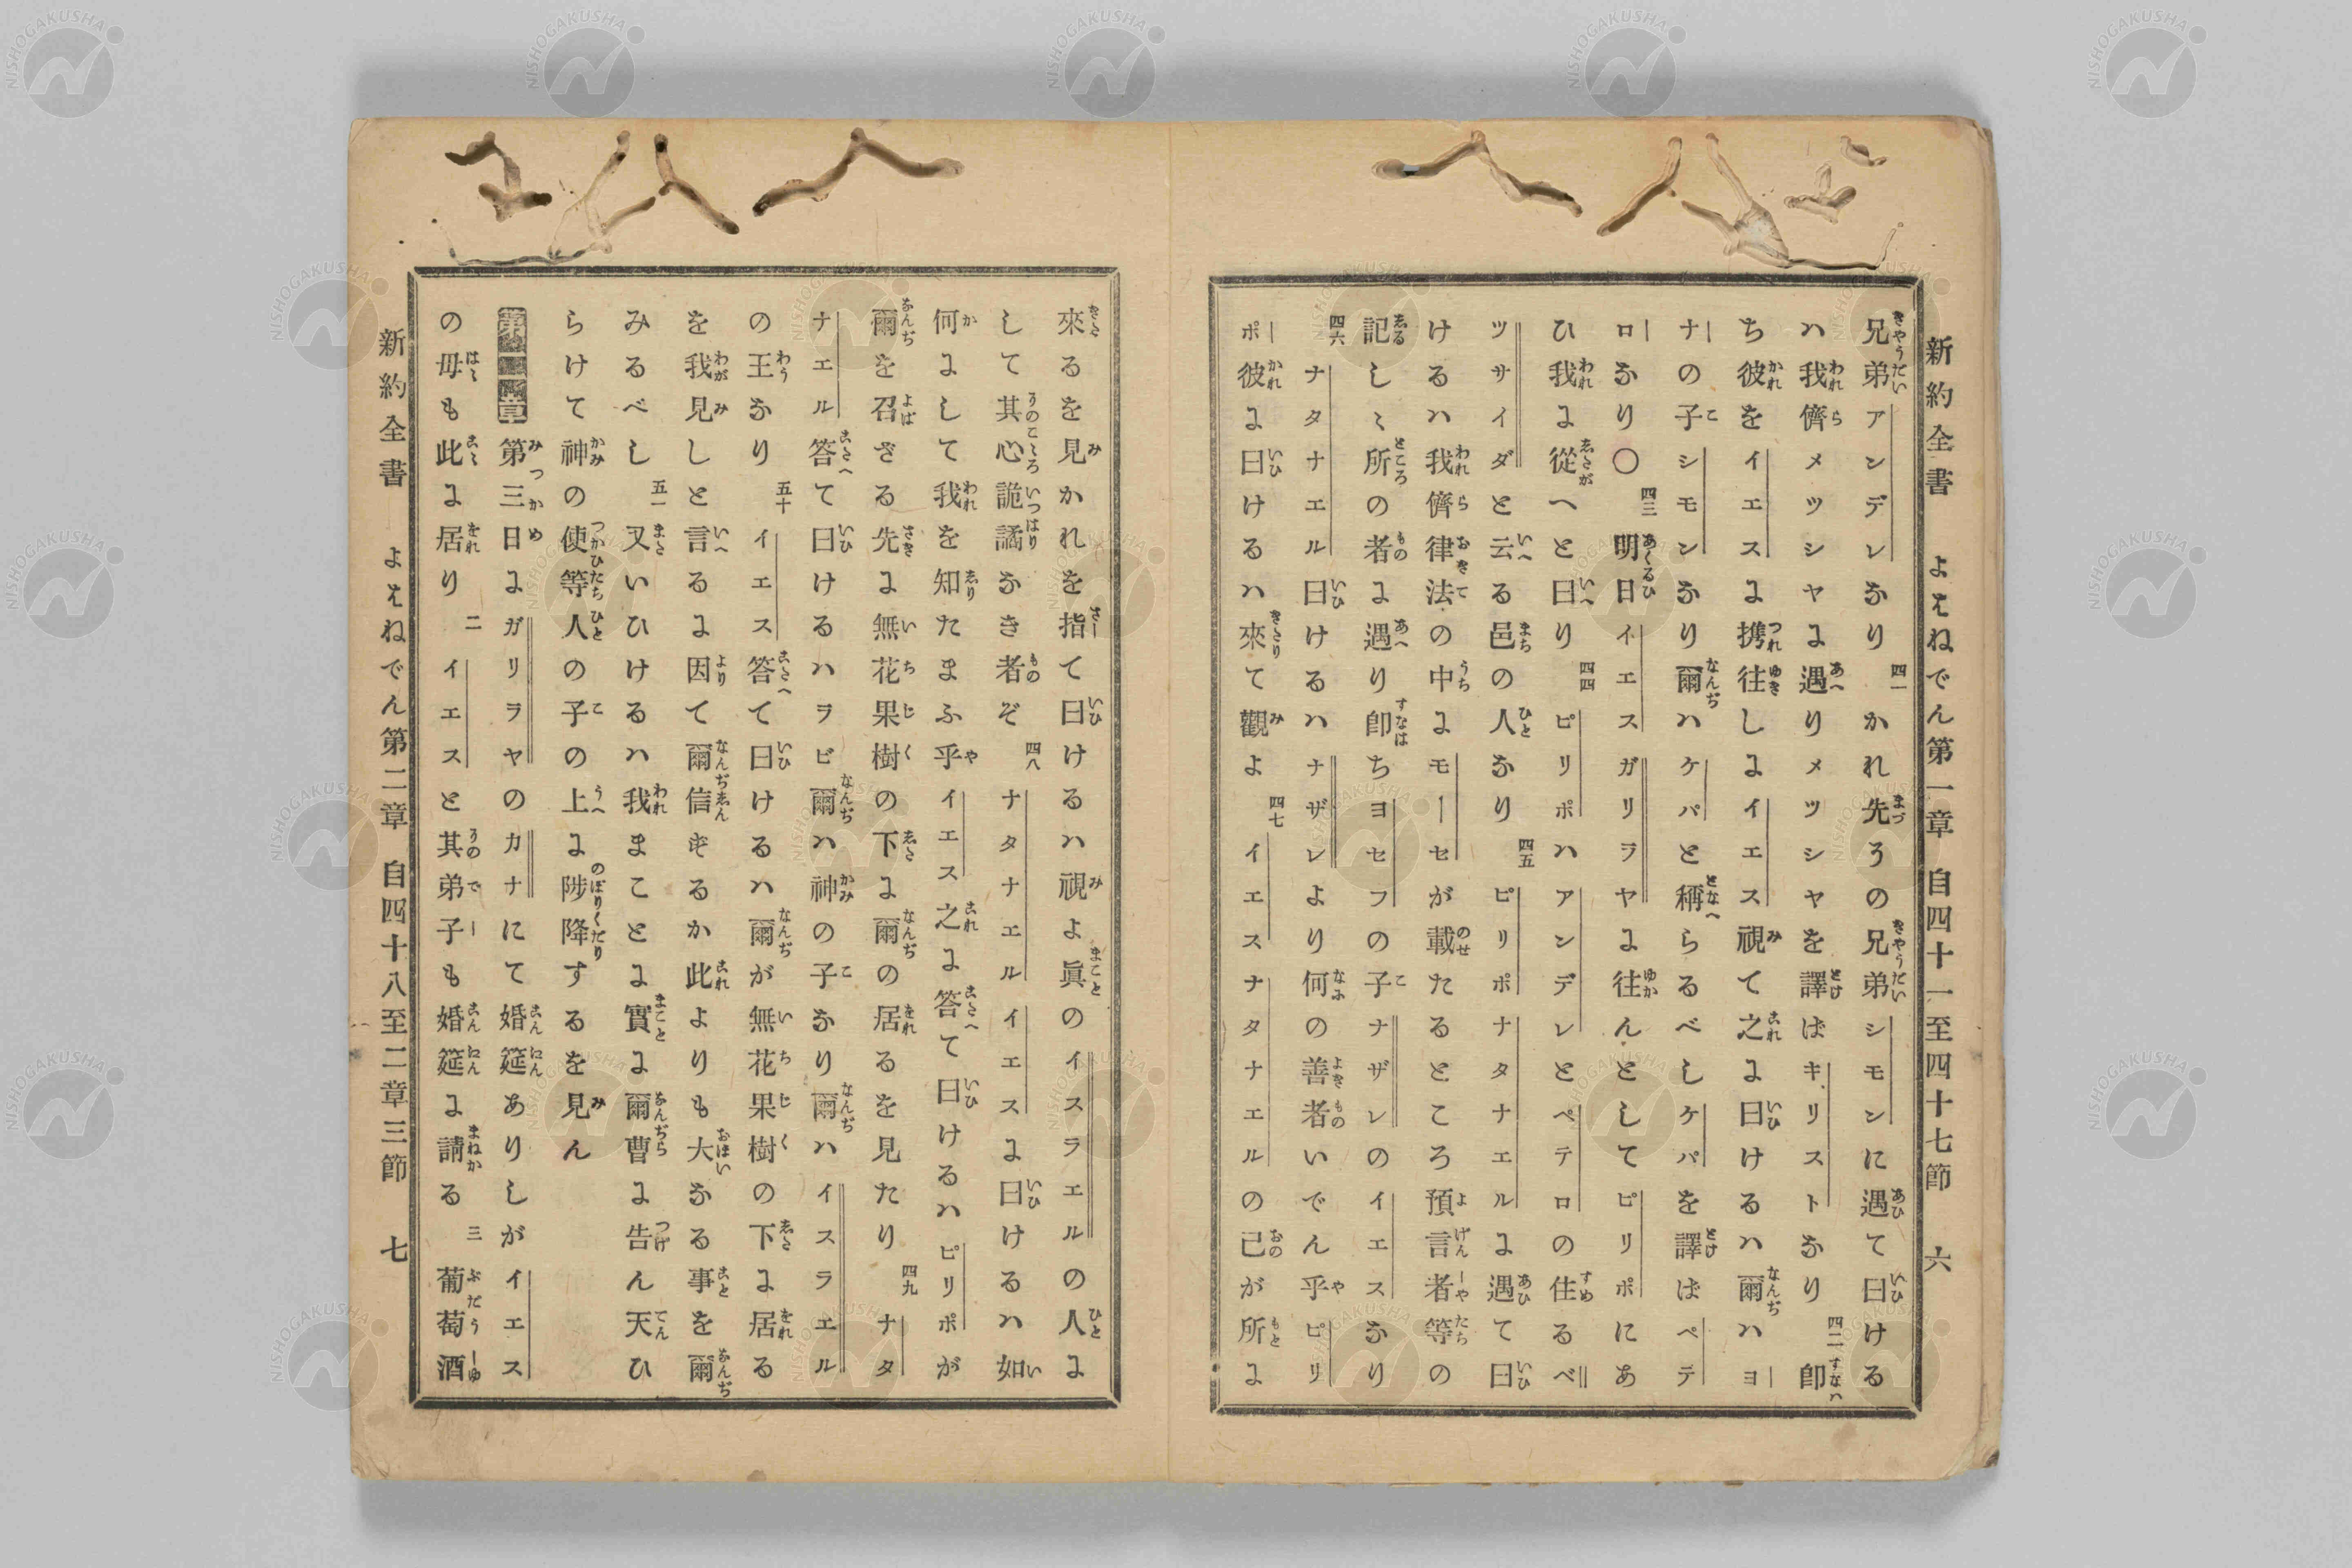 新約全書 よはねでん第一章 自四十一至四十七節 六
兄弟アンデレなり 四一 かれ先その兄弟シモンに遇て曰ける
ハ我儕メツシヤに遇りメツシヤを譯ばキリストなり 四二 即
ち彼をイエスに携往しにイエス視て之に曰けるハ爾ハヨ
ナの子シモンなり爾ハケパと稱らるべしケパを譯ばペテ
ロなり〇 四三 明日イエスガリラヤに往んとしてピリポにあ
ひ我に從へと曰り 四四 ピリポハアンデレとペテロの住るベ
ツサイダと云る邑の人なり 四五 ピリポナタナエルに遇て曰
けるハ我儕律法の中にモーセが載たるところ預言者等の
記しゝ所の者に遇り即ちヨセフの子ナザレのイエスなり
四六 ナタナエル曰けるハナザレより何の善者いでん乎ピリ
ポ彼に曰けるハ來て觀よ 四七 イエスナタナエルの己が所に
來るを見かれを指て曰けるハ視よ眞のイスラエルの人に
して其心詭譎なき者ぞ 四八 ナタナエルイエスに曰けるハ如
何にして我を知たまふ乎イエス之に答て曰けるハピリポが
爾を召ざる先に無花果樹の下に爾の居るを見たり 四九 ナタ
ナエル答て曰けるハラビ爾ハ神の子なり爾ハイスラエル
の王なり 五十 イエス答て曰けるハ爾が無花果樹の下に居る
を我見しと言るに因て爾信ずるか此よりも大なる事を爾
みるべし 五一 又いひけるハ我まことに實に爾曹に告ん天ひ
らけて神の使等人の子の上に陟降するを見ん
第二章 第三日にガリラヤのカナにて婚筵ありしがイエス
の母も此に居り 二 イエスと其弟子も婚筵に請る 三 葡萄酒
新約全書 よはねでん第二章 自四十八至二章三節 七
NISHOGAKUSHA